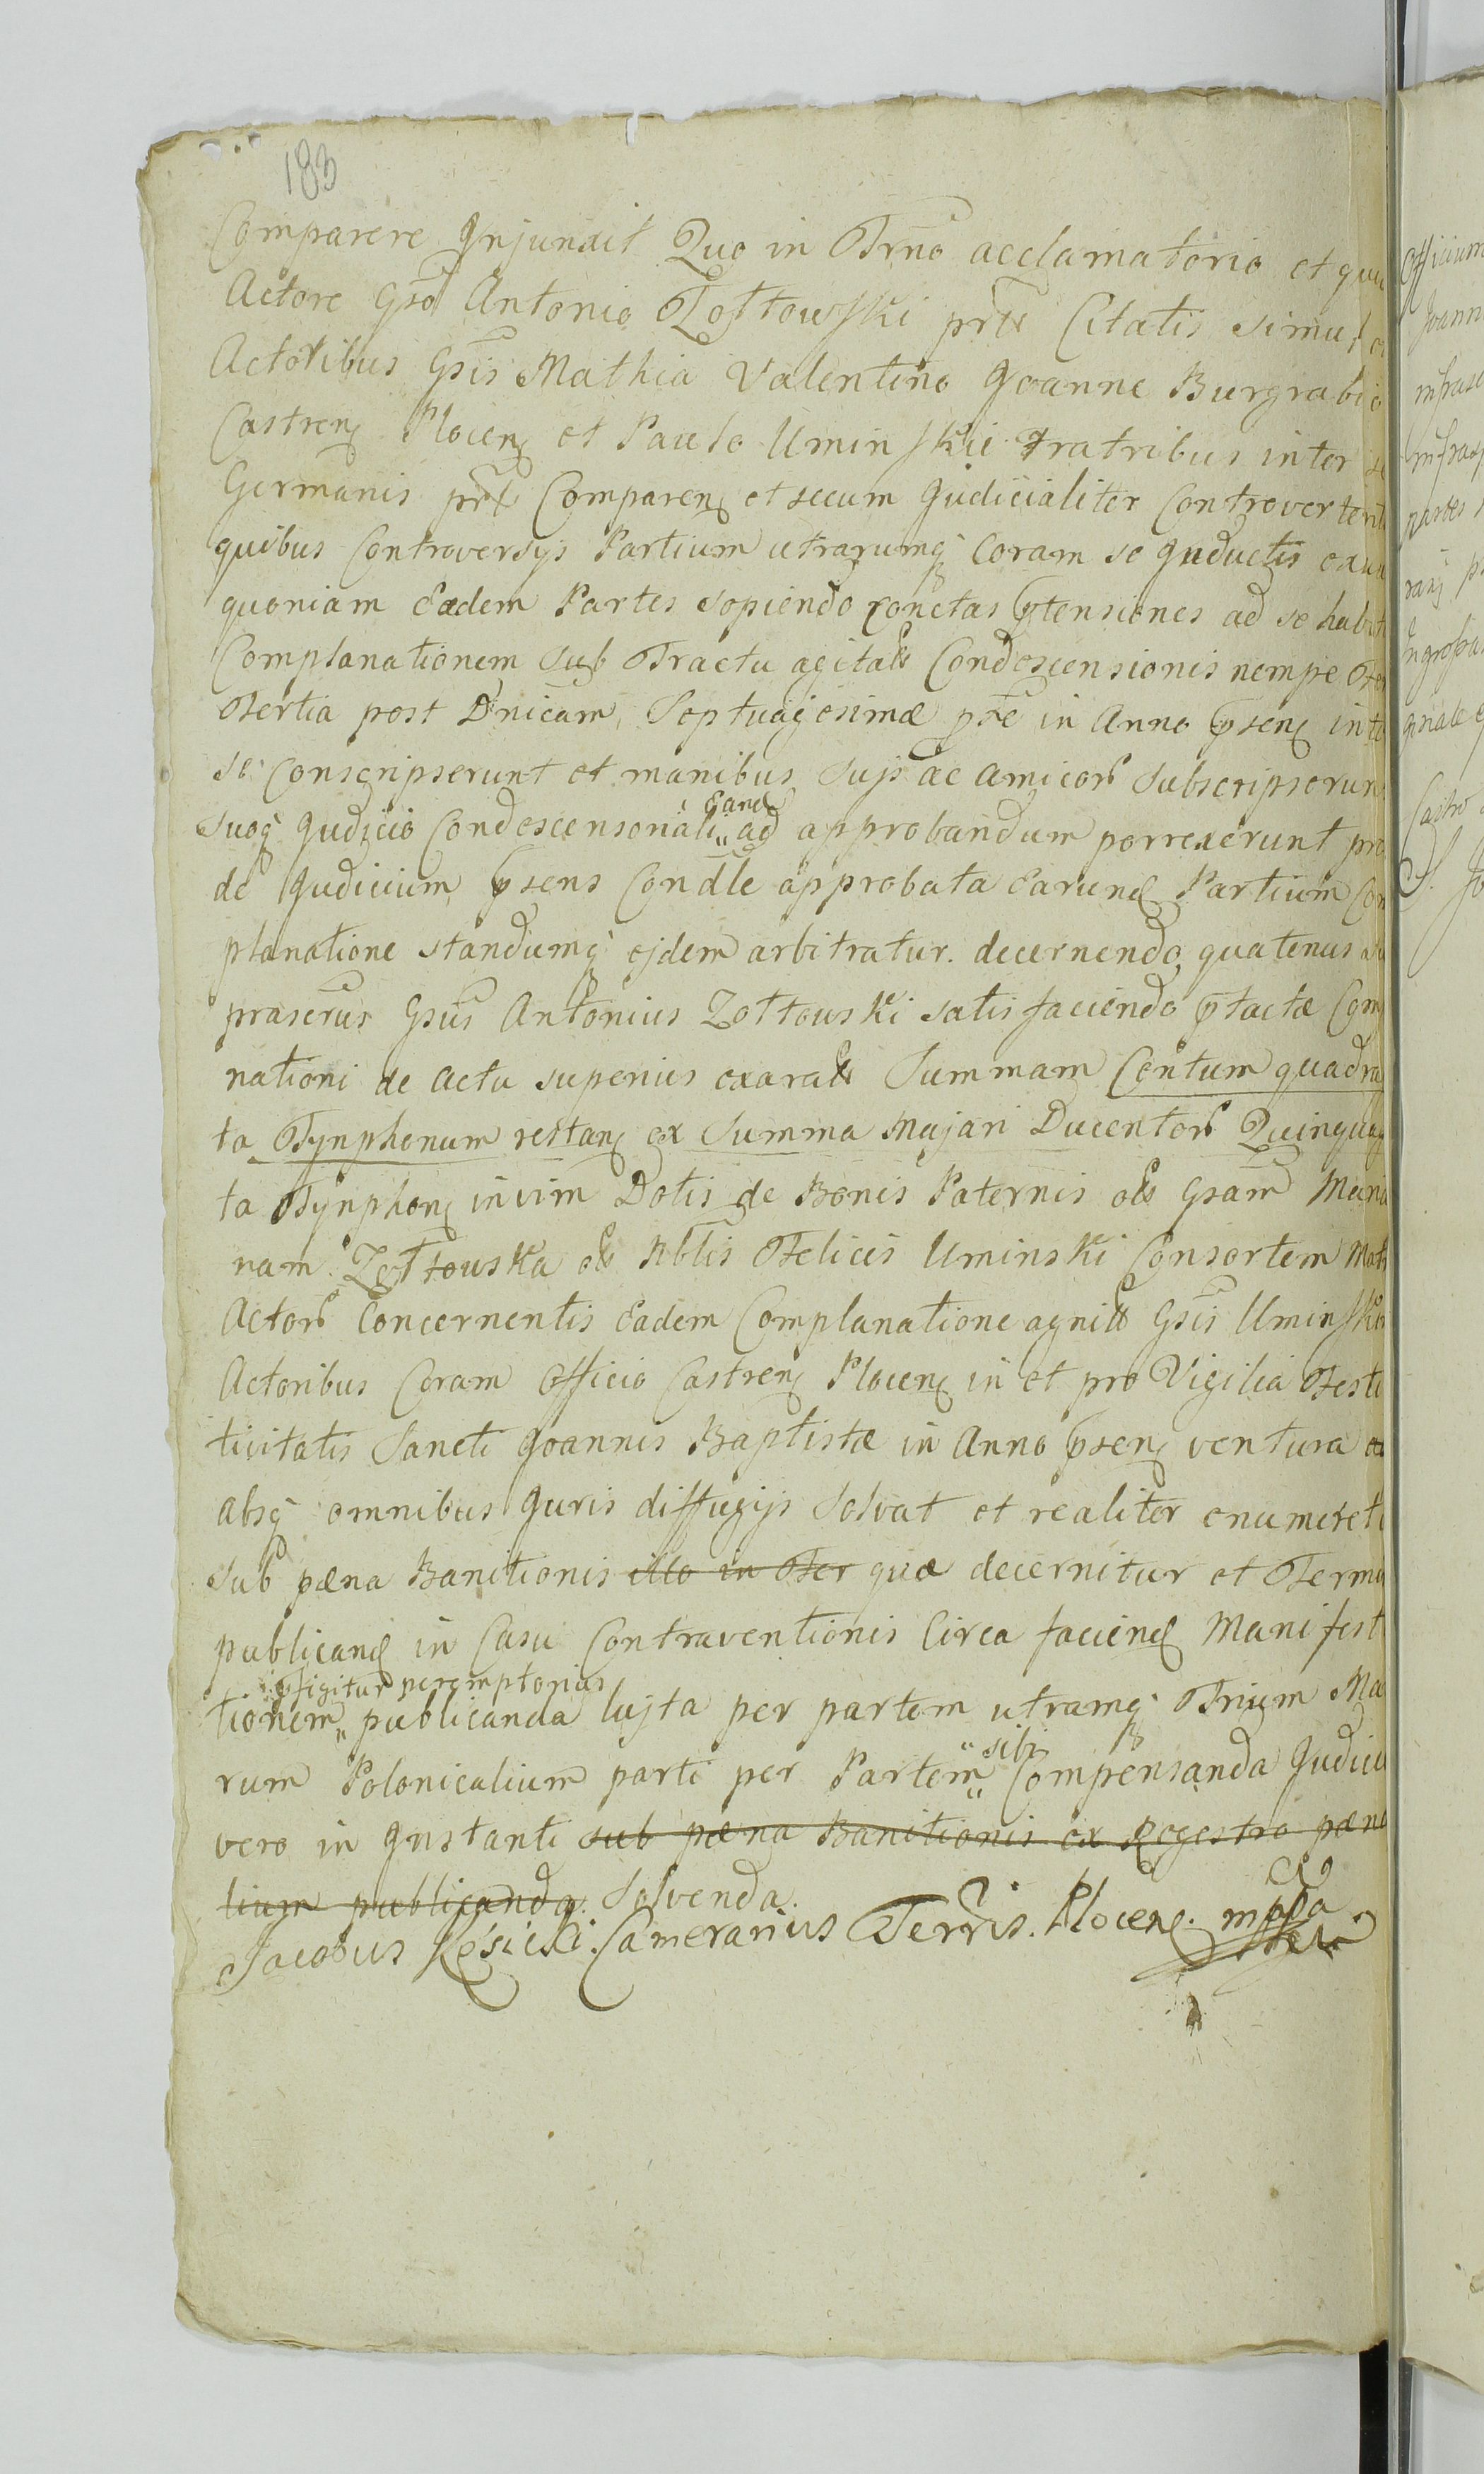 183
Comparere Injunxit Quo in Trno acclamatorio et
Actore Gso Antonio Zołtowski prtt Citatis simul
Actoribus Gsis Mathia Valentino Joanne Burgrabio
Castren Plocen et Paulo Uminskie Fratribus inter se
Germanis prtt Comparen et secum Judicialiter Controverten
quibus Controversys Partium utrarumq Coram se Inductis
quoniam Eædem Partes sopiendo conctas ptensiones ad se
Complanationem sub Tractu agitatt Condescensionis nempe
Tertia post Dnicam Septuagesimæ pte in Anno psen
se conscripserunt et manibus suys ac amicor subscripserun
Eand
suoq Judicio Condescensonali „ ad approbandum porrexerunt
de Judicium psens Condle approbata earund Partium Com
planatione standumq ejdem arbitratur. decernendo quatenus
prascrus Gsus Antonius Zołtowski satisfaciendo ptactæ Com
nationi de actu superius exaratt Summam Centum quadra
ta Tynphonum restan ex summa Majari Ducentor Quinqua
ta Tynphon in vim Dotis de Bonis Paternis ott Gsam
nam Zołtowska ott Nblis Felicis Uminski Consortem
Actor Concernentis Eadem Complanatione agnitt Gsis Uminski
Actoribus Coram Officio Castren Plocen in et pro Vigilia Festi
tivitatis Sancti Joannis Baptistæ in Anno psen ventura
absq omnibus Juris diffugijs solvat et realiter enumeret
sub pæna Banitionis illo in Ter quæ decernitur et Termi
publicand in Casu Contraventionis Circa faciend Manifest
pfigitur peremptorius
tionem „ publicanda lujta per partem utramq Trium Ma
sibi
rum Polonicalium parti per Partem „ Compensanda Judici
vero in Instanti sub pæna Banitionis ex Regestro pæna
lium publicanda. Solvenda.
Jacobus Kosicki. Camerarius Terris. Plocen. mppa
Officium
Joann
infrasc
partes
ngrossa
Castro